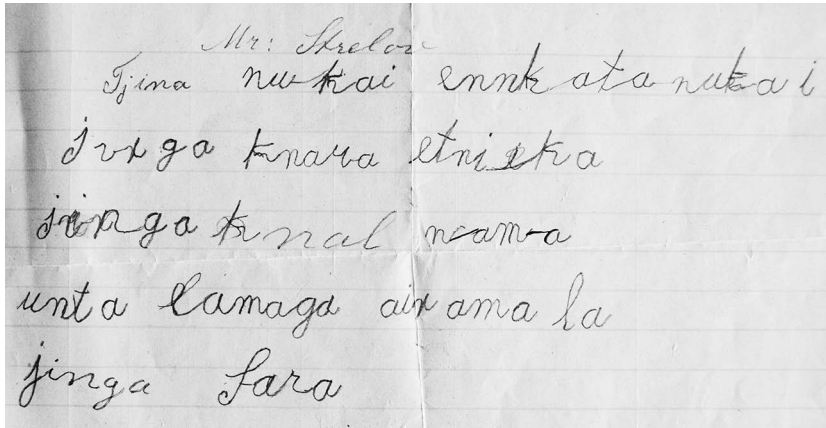 Mr: Strelow
Tjina nukai ennkata nukai
knara
jinga knal nama
unta lamaga airamala
jinga Sara